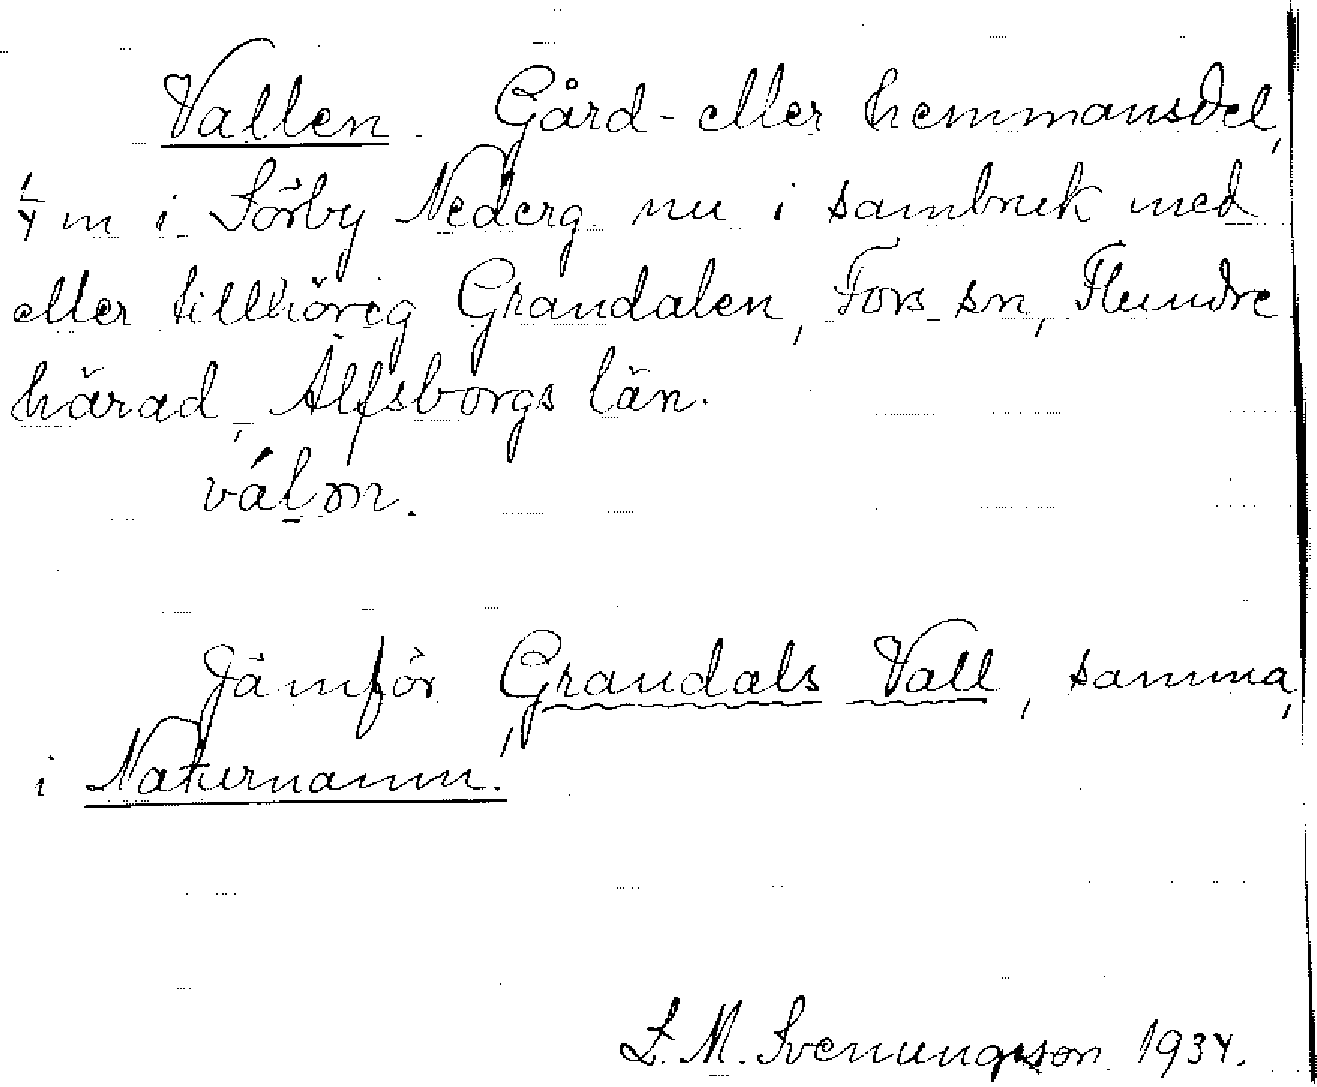 Vallen. Gård- eller hemmansdel,
1/4 m i Sörby Nederg. nu i sambruk med
eller tillhörig Grandalen, Fors sn, Flundre
härad, Älfsborgs län.
válɷn.
Jämför Grandals Vall, samma,
i Naturnamn.
L. M. Svenungsson 1934.